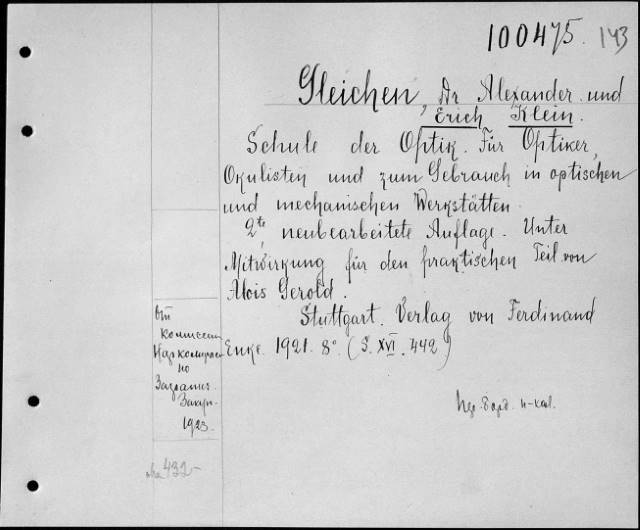 100475. 143
Gleichen, Dr Alexander und
Erich Klein.
Schule der Optik. Für Optiker,
Okulisten und zum Gebrauch in optischen
und mechanischen Werkstätten.
2te, neubearbeitete Auflage. Unter
Mitwirkung für den praktischen Teil von
Alois Gerold.
Stuttgart. Verlag von Ferdinand
Enke. 1921. 8° (S. XVI. 442)
комиссии
по
Закуп.
1923.
432-